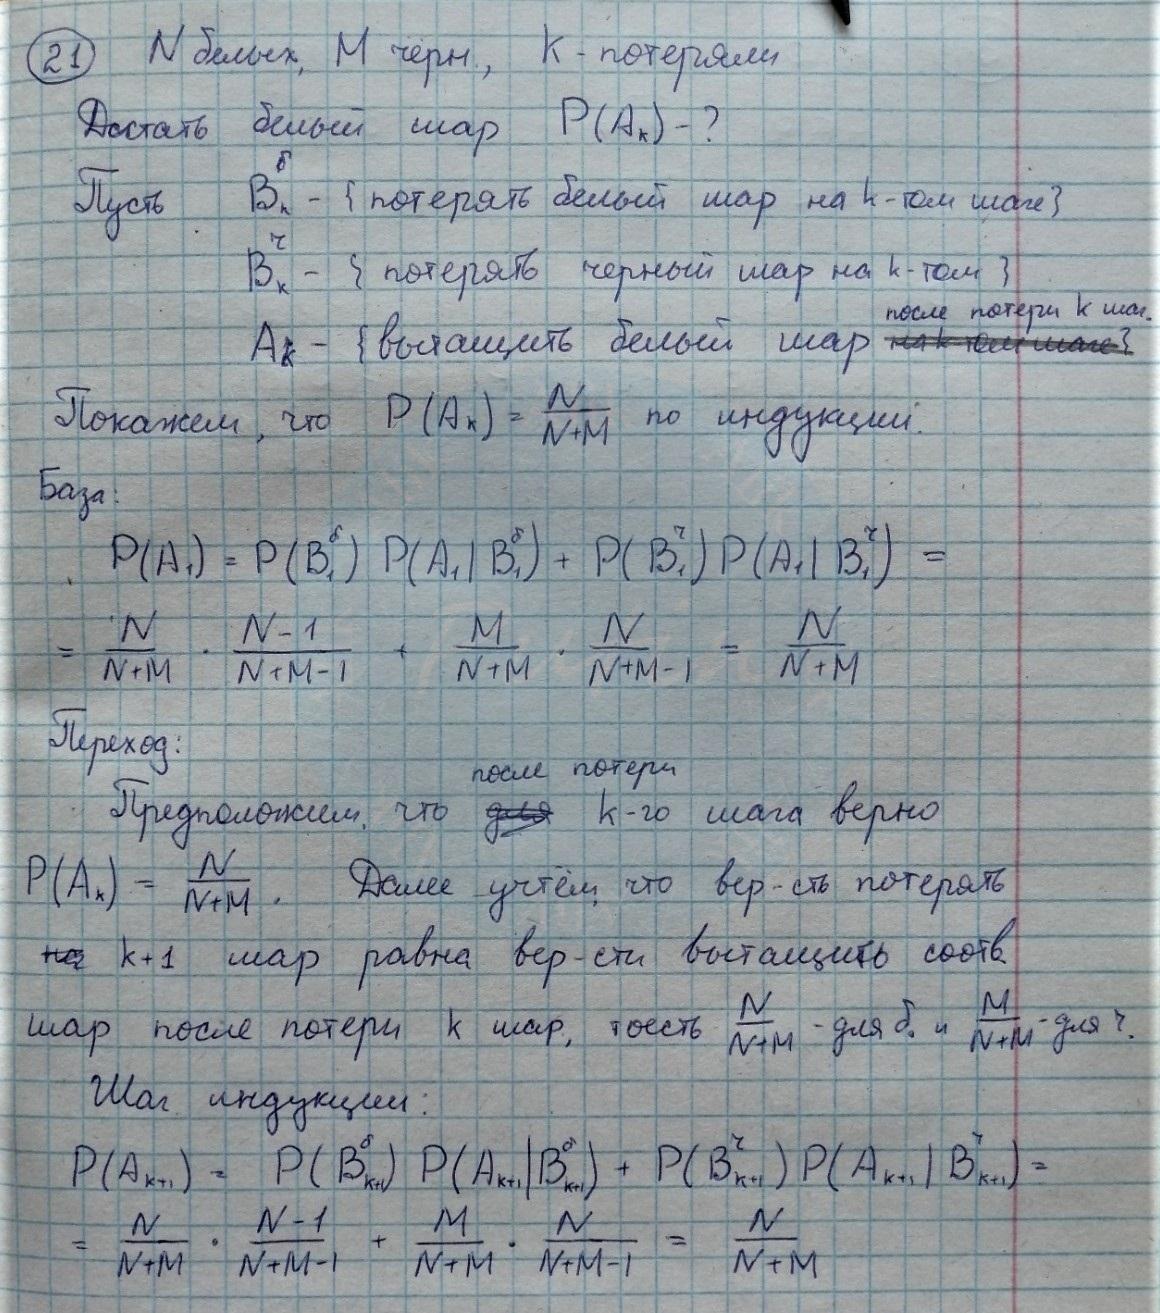 21 N белых, M черн., K - потеряли
Достать белый шар P(Aₖ) - ?
Пусть Bₖᵟ - { потерять белый шар на k-том шаге}
Bₖ^ч - { потерять черный шар на k-том }
Aₖ - {вытащить белый шар после потери k шар.
Покажем, что P(Aₖ) = N/(N+M) по индукции.
База:
P(A₁) = P(B₁^б) P(A₁|B₁^б) + P(B₁^ч) P(A₁|B₁^ч) =
= N/(N+M) · (N-1)/(N+M-1) + M/(N+M) · N/(N+M-1) = N/(N+M)
Переход:
Предположим, что после потери k-го шага верно
P(Aₖ) = N/(N+M). Далее учтём, что вер-сть потерять
k+1 шар равна вер-сти вытащить соотв.
шар после потери k шар, тоесть N/(N+M) - для б. и M/(N+M) - для ч.
Шаг индукции:
P(Aₖ₊₁) = P(Bₖ₊₁^б) P(Aₖ₊₁|Bₖ₊₁^б) + P(Bₖ₊₁^ч) P(Aₖ₊₁|Bₖ₊₁^ч) =
= N/(N+M) · (N-1)/(N+M-1) + M/(N+M) · N/(N+M-1) = N/(N+M)